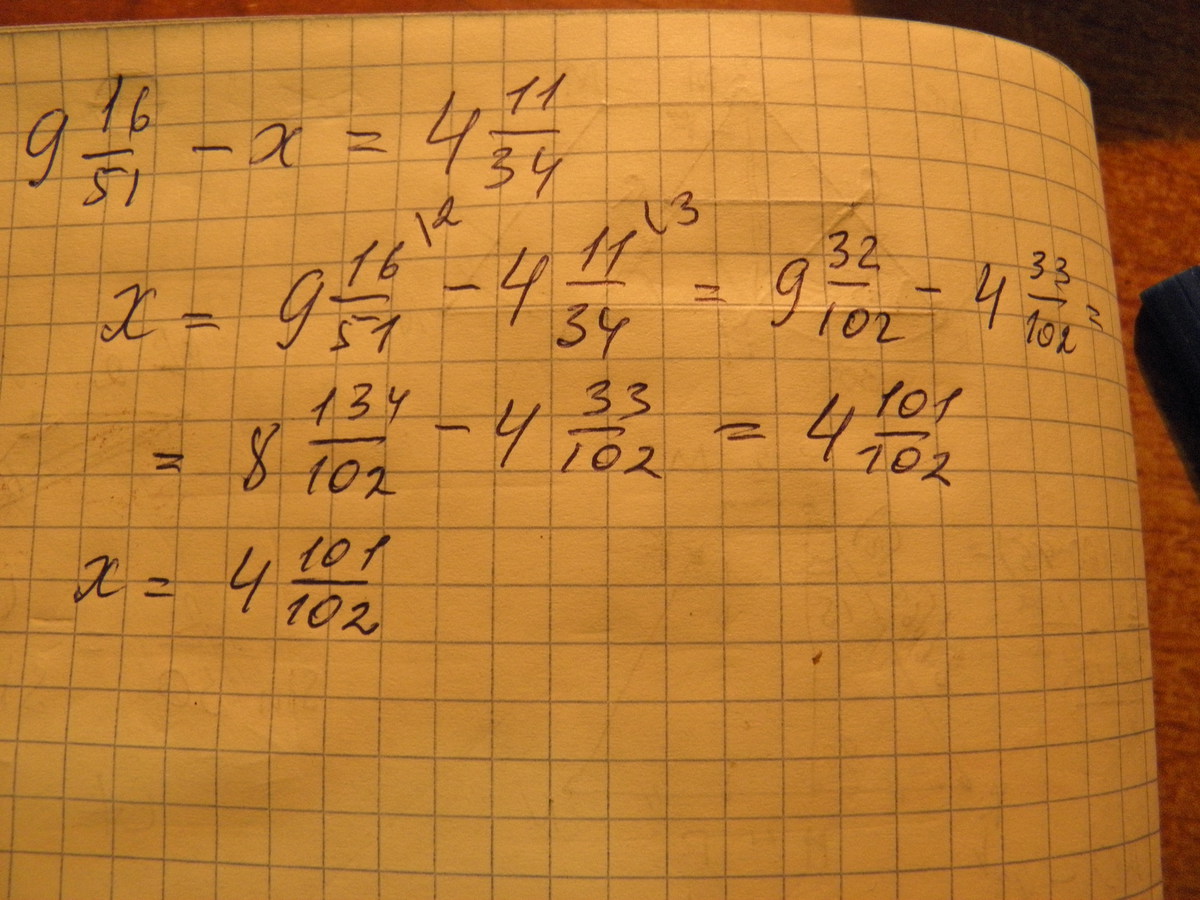 9 16/51 - x = 4 11/34
x = 9 16/51 \2 - 4 11/34 \3 = 9 32/102 - 4 33/102 =
= 8 134/102 - 4 33/102 = 4 101/102
x = 4 101/102